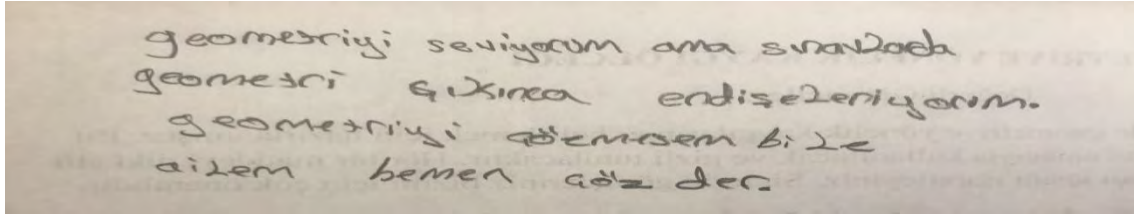 geometriyi seviyorum ama sınavlarda
geometri çıkınca endişeleniyorum.
geometriyi çözmesem bile
ailem hemen çöz der.